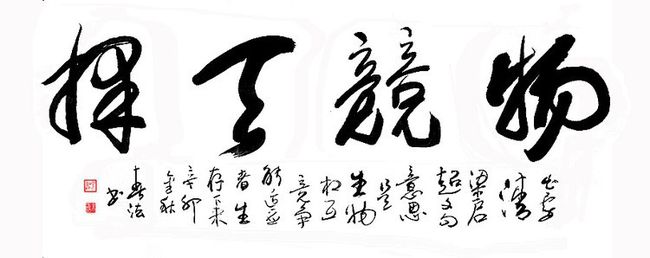 物競天择
出处
清
梁启
超文句
意思
是
生物
相互
竞争
能适应
者生
存下来
辛卯
金秋
春法
书